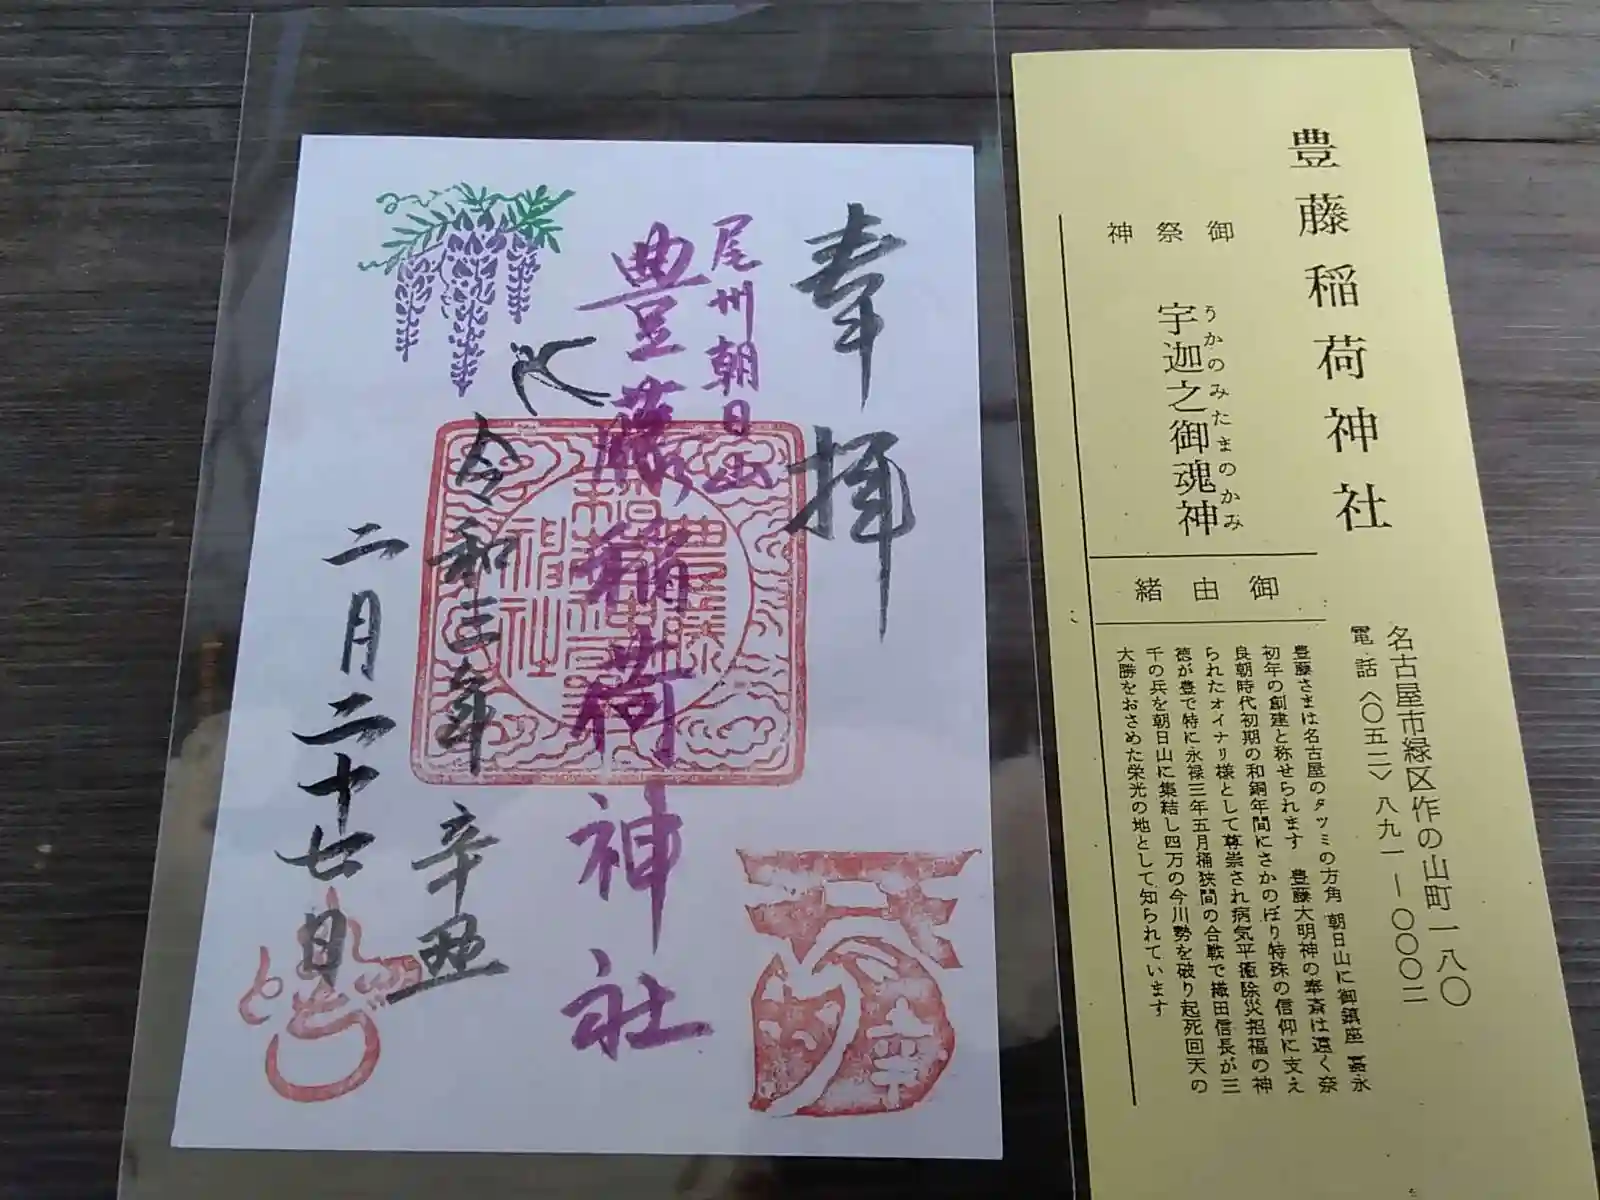 奉拝
尾州朝日山
豊藤稲荷神社
令和三年 辛丑
二月二十七日
豊藤
稲荷
神社
豊藤稲荷神社
名古屋市緑区作の山町一八〇
電話〈〇五二〉八九一ー〇〇〇二
御祭神
うかのみたまのかみ
宇迦之御魂神
御由緒
豊藤さまは名古屋のタツミの方角 朝日山に御鎮座 嘉永
初年の創建と称せられます 豊藤大明神の奉斎は遠く奈
良朝時代初期の和銅年間にさかのぼり特殊の信仰に支え
られたオイナリ様として尊崇され病気平癒除災招福の神
徳が豊で特に永禄三年五月桶狭間の合戦で織田信長が三
千の兵を朝日山に集結し四万の今川勢を破り起死回天の
大勝をおさめた栄光の地として知られています